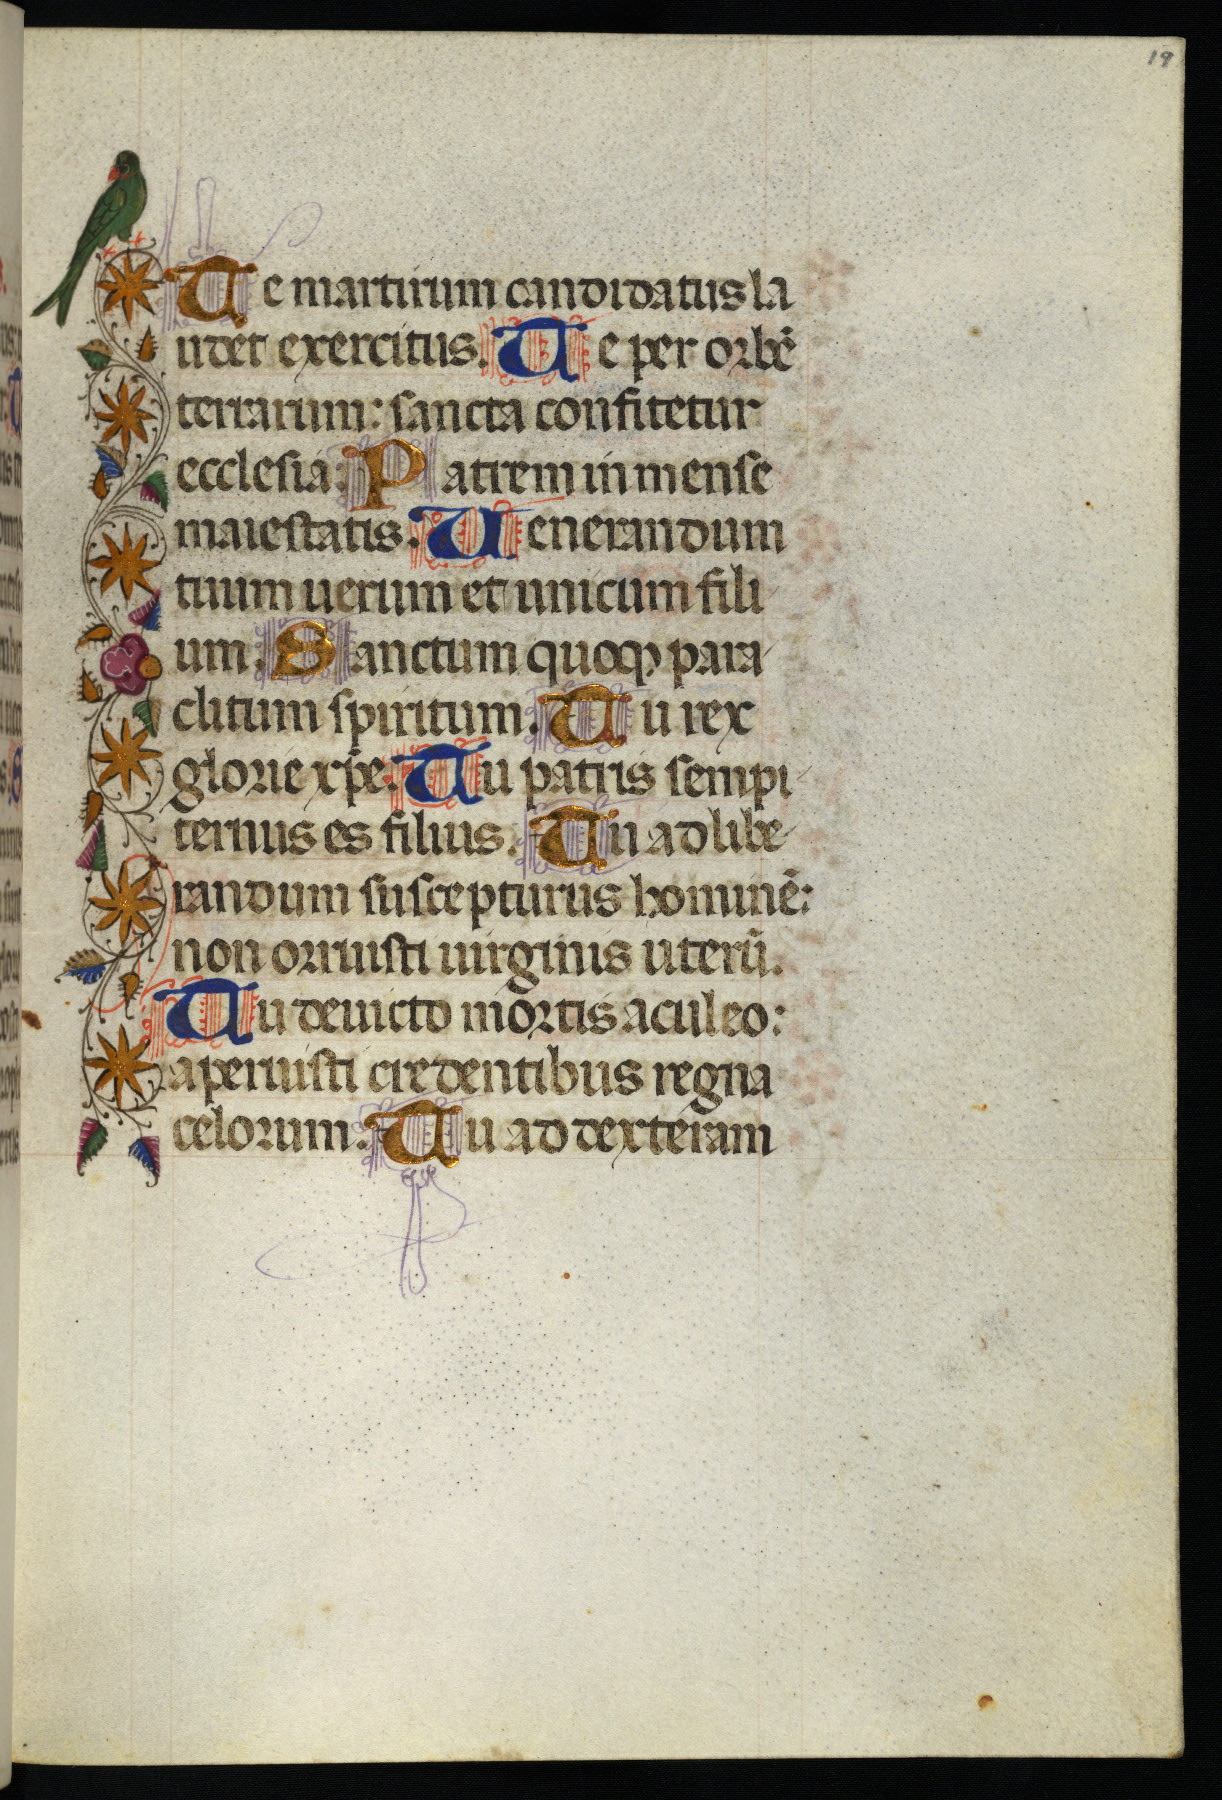 19
Te martirum candidatus la
udet exercitus. Te per orbē
terrarum: sancta confitetur
ecclesia. Patrem inmense
maiestatis. Uenerandum
tuum uerum et unicum fili
um. Sanctum quoqꝫ para
clitum spiritum. Tu rex
glorie xp̄e. Tu patris sempi
ternus es filius. Tu ad libe
randum suscepturus hominē:
non orruisti uirginis uterū.
Tu deuicto mortis aculeo:
aperuisti credentibus regna
celorum. Tu ad dexteram